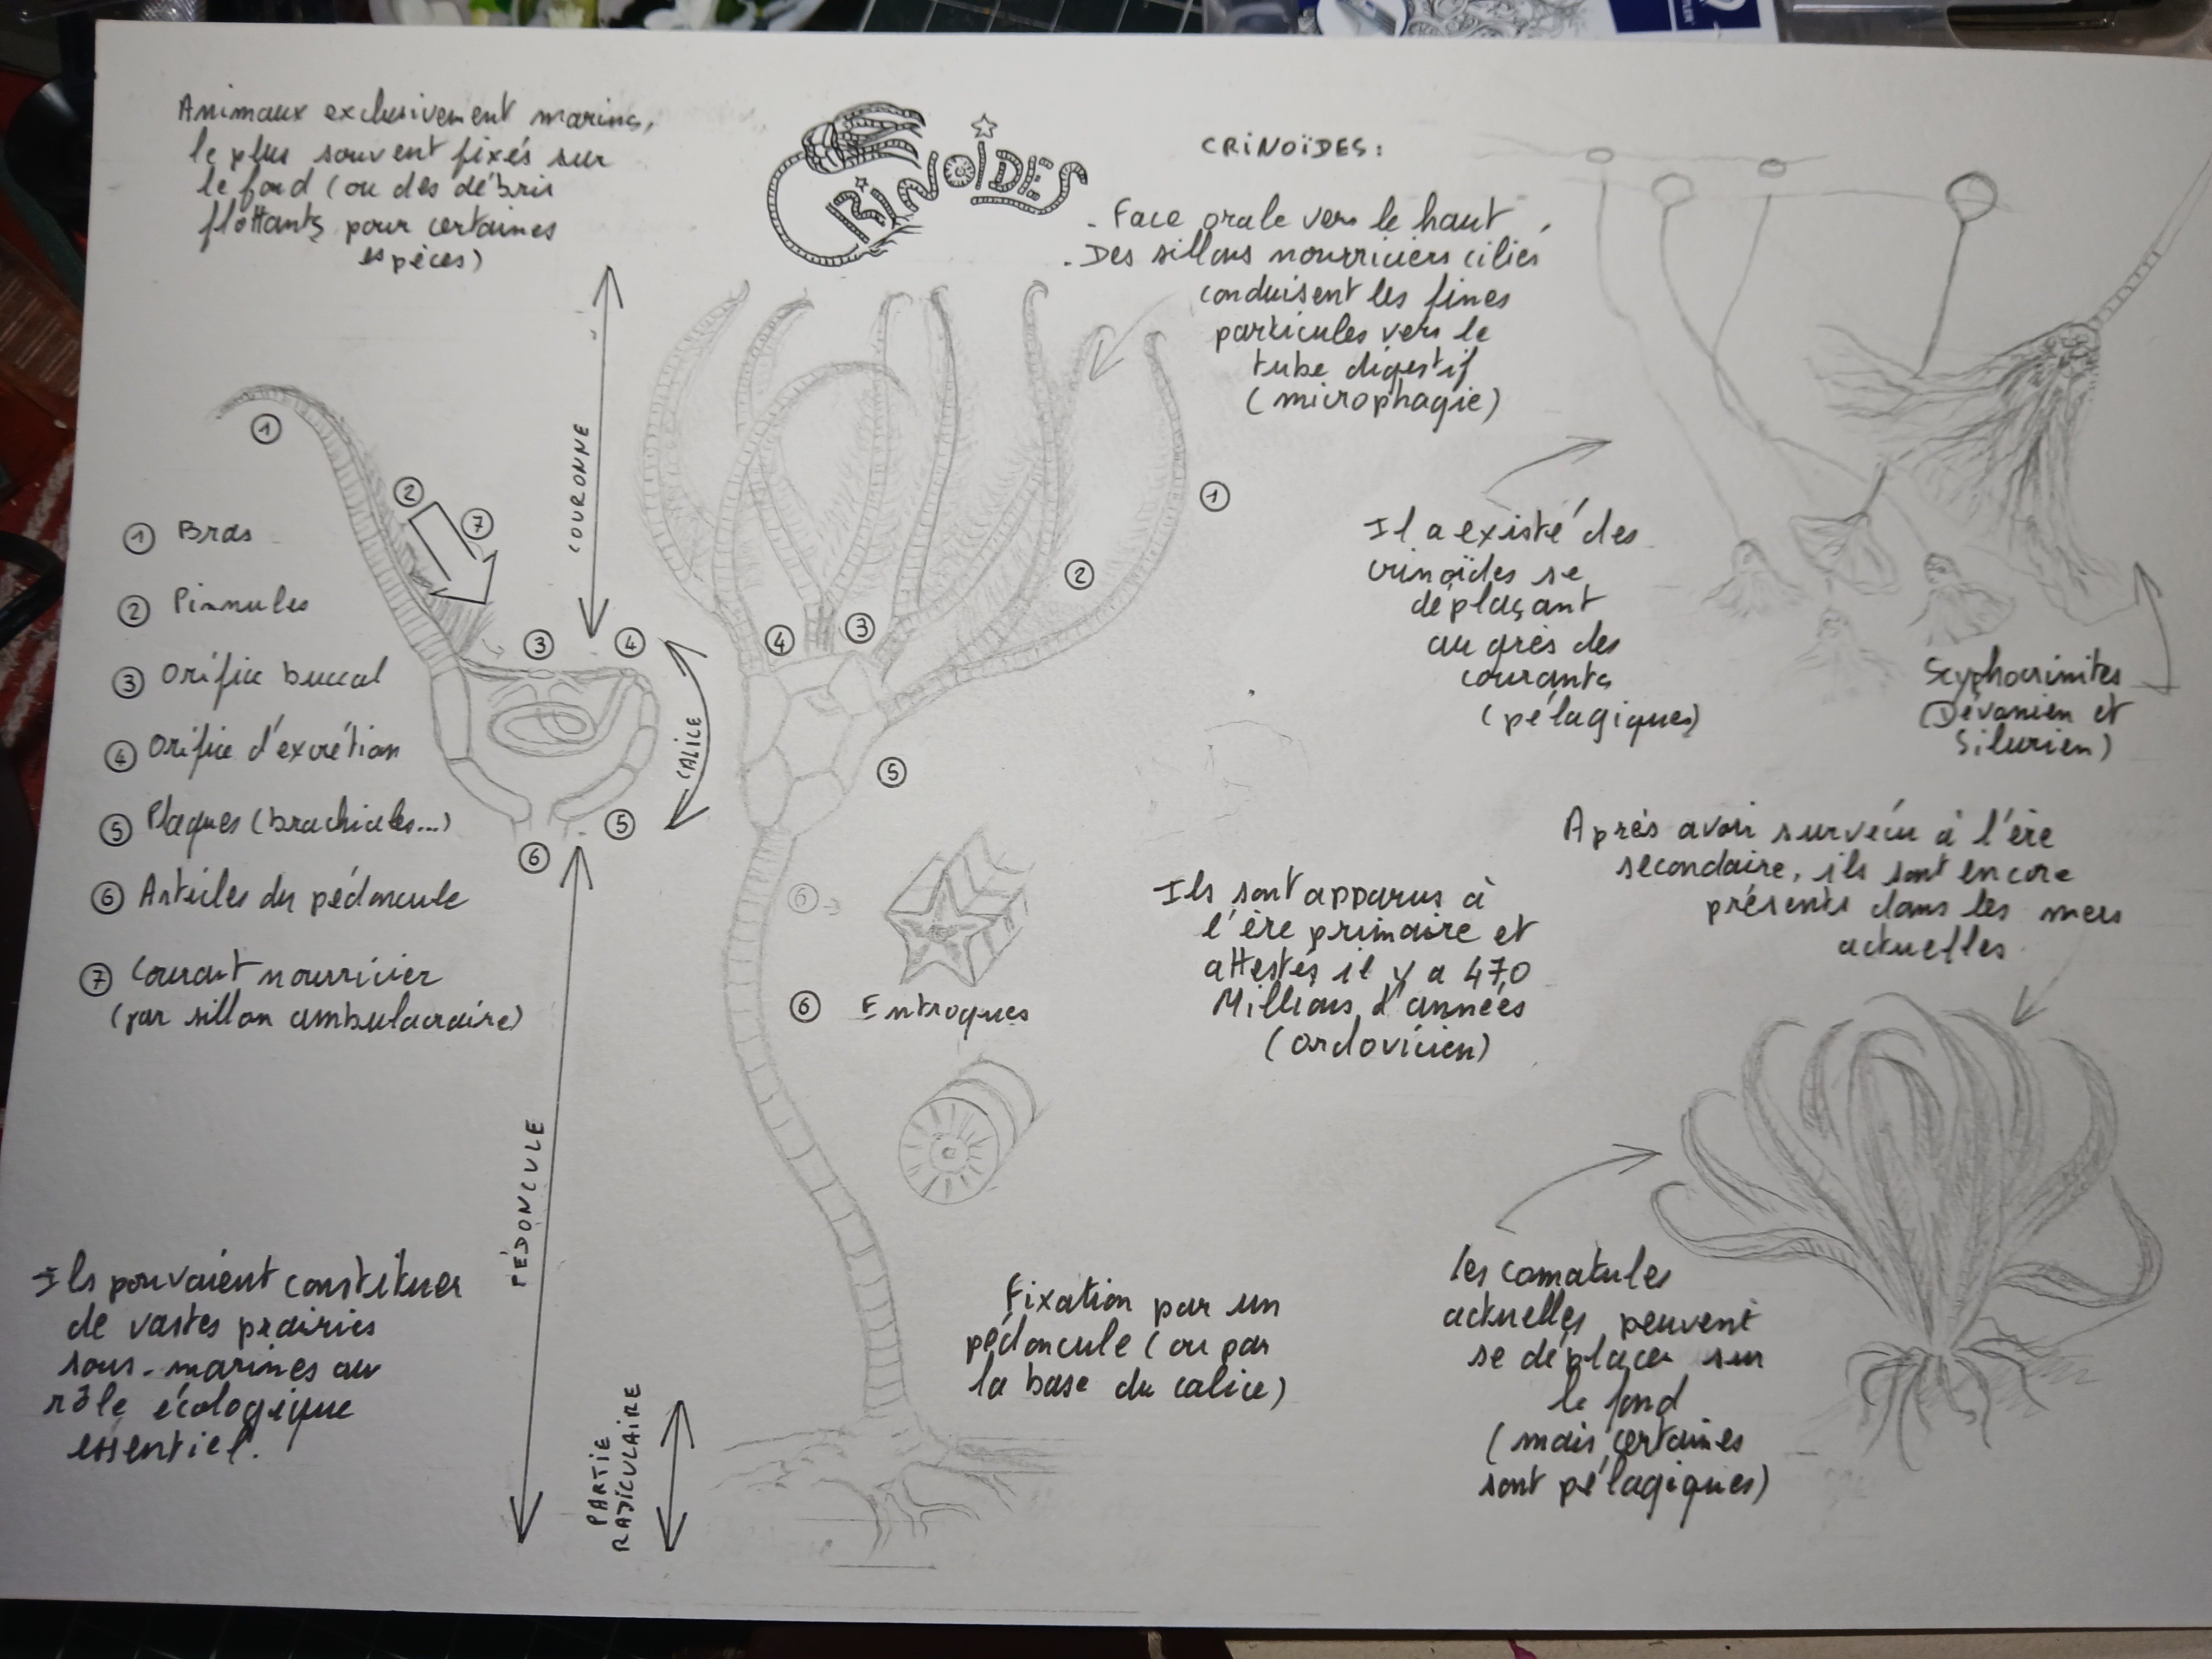 Animaux exclusivement marins,
le plus souvent fixés sur
le fond (ou des débris
flottants pour certaines
espèces)
CRINOÏDES
CRINOÏDES :
- Face orale vers le haut,
- Des sillons nourriciers ciliés
conduisent les fines
particules vers le
tube digestif
(microphagie)
COURONNE
1
2
7
3
4
1
2
4
3
5
5
6
CALICE
1 Bras
2 Pinnules
3 Orifice buccal
4 Orifice d'excrétion
5 Plaques (brachiales...)
6 Articles du pédoncule
7 Courant nourricier
(par sillon ambulacraire)
Il a existé des
crinoïdes se
déplaçant
au grès des
courants
(pélagiques)
Scyphocrinites
(Dévonien et
Silurien)
Après avoir survécu à l'ère
secondaire, ils sont encore
présents dans les mers
actuelles.
6
6 Entroques
Ils sont apparus à
l'ère primaire et
attestés il y a 470
Millions d'années
(ordovicien)
PÉDONCULE
Ils pouvaient constituer
de vastes prairies
sous-marines au
rôle écologique
essentiel.
PARTIE
RADICULAIRE
Fixation par un
pédoncule (ou par
la base du calice)
les comatules
actuelles peuvent
se déplacer sur
le fond
(mais certaines
sont pélagiques)